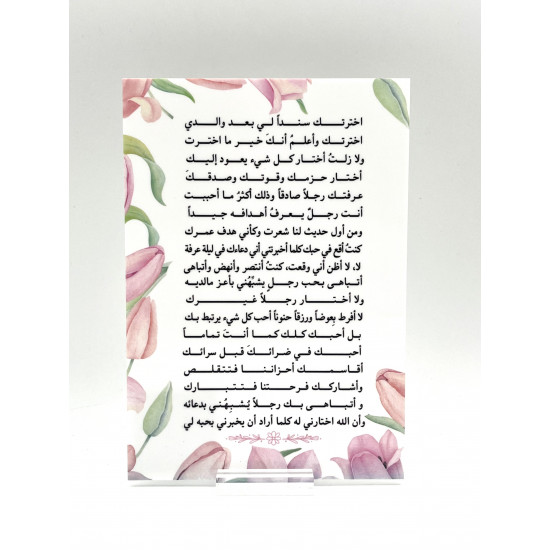 اخترتك سنداً لي بعد والدي
اخترتك وأعلمُ أنكَ خير ما اخترت
ولا زلتُ أختار كل شيء يعود إليك
أختار حزمك وقوتك وصدقكَ
عرفتكَ رجلاً صادقاً وذلك أكثرُ ما أحببت
أنت رجلٌ يعرفُ أهدافه جيداً
ومن أول حديث لنا شعرت وكأني هدف عمرك
كنتُ أقع في حبك كلما أخبرتني أني دعاءك في ليلة عرفة
لا، لا أظن أني وقعت، كنتُ أنتصر وأنهض وأتباهى
أتباهى بحب رجلٍ يشبِّهُني بأعز مالديه
ولا أختار رجلاً غيرك
لا أفرط بِعوضاً ورزقاً حنوناً أحب كل شيء يرتبط بك
بل أحبك كلك كما أنتَ تماماً
أحبك في ضرائكَ قبل سرائك
أقاسمك أحزاننا فتتقلص
وأشاركك فرحتنا فتتبارك
و أتباهى بك رجلاً يُشبِهُني بدعائه
وأن الله اختارني له كلما أراد أن يخبرني بحبه لي